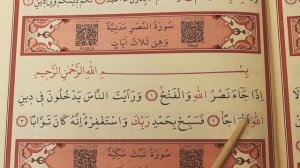 سُورَةُ النَّصْرِ مَدَنِيَّةٌ
وَهِيَ ثَلَاثُ آيَاتٍ
بِسْمِ اللهِ الرَّحْمٰنِ الرَّحِيمِ
اِذَا جَٓاءَ نَصْرُ اللهِ وَالْفَتْحُۙ ﴿١﴾ وَرَاَيْتَ النَّاسَ يَدْخُلُونَ فٖى دٖينِ
اللهِ ﴿٢﴾ فَسَبِّحْ بِحَمْدِ رَبِّكَ وَاسْتَغْفِرْهُ اِنَّهُ كَانَ تَوَّابًا ﴿٣﴾
سُورَةُ تَبَّتْ مَكِّيَّةٌ